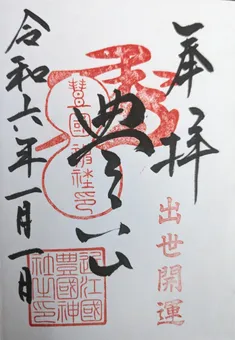 奉拝
出世開運
豊公
豊國神社印
近江國
豊國神
社之印
令和六年一月一日